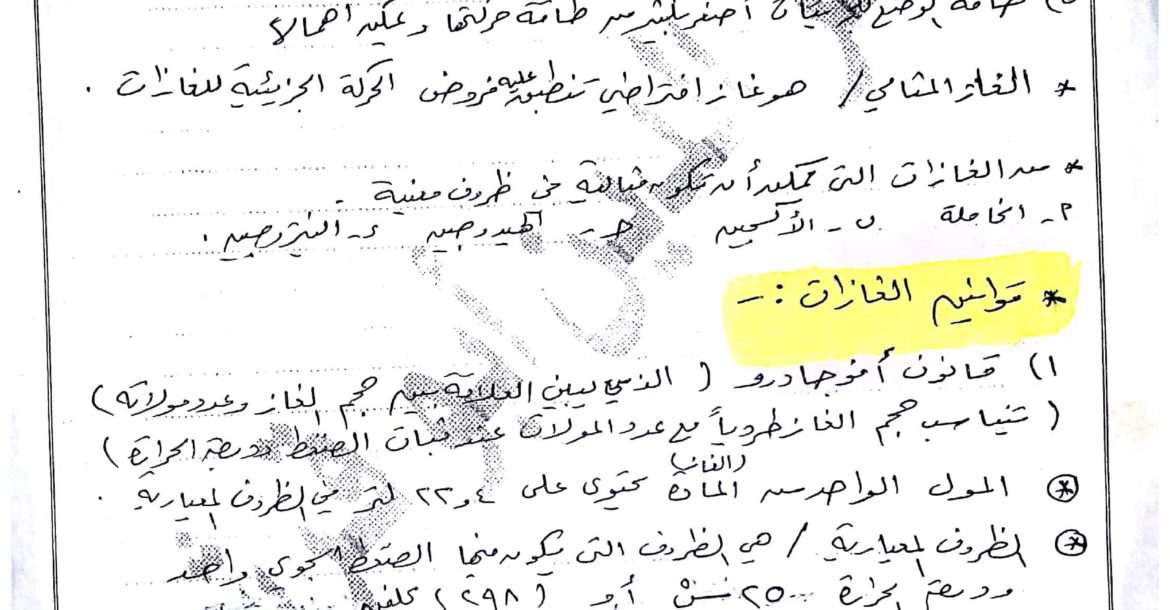 طاقة الوضع للجزيئات أصغر بكثير من طاقة حركتها ويمكن اهمالها
* الغاز المثالي / هو غاز افتراضي تنطبق عليه فروض الحركة الجزيئية للغازات .
* من الغازات التي يمكن أن تكون مثالية في ظروف معينة .
٢- الخاملة ب- الأكسجين ج- الهيدروجين د- النيتروجين .
* قوانين الغازات :-
١) قانون أفوجادرو ( الذي يبين العلاقة بين حجم الغاز وعدد مولاته )
( تناسب حجم الغاز طردياً مع عدد المولات عند ثبات الضغط ودرجة الحرارة )
* المول الواحد من المادة (الغاز) تحتوي على ٢٢و٤ لتر في الظروف المعيارية .
* الظروف المعيارية / هي الظروف التي يكون فيها الضغط الجوي واحد
ودرجة الحرارة ٢٥ أو ( ٢٩٨ ) كلفن